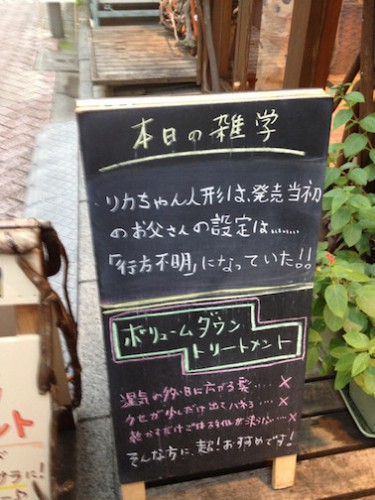 本日の雑学
リカちゃん人形は、発売当初
のお父さんの設定は……
「行方不明」になっていた!!
ボリュームダウン
トリートメント
湿気の多い日に広がる髪…×
クセが少しだけ出てハネる…×
乾かすだけではスタイルが決らない…×
そんな方に、超!おすすめです!
ント
サラに!